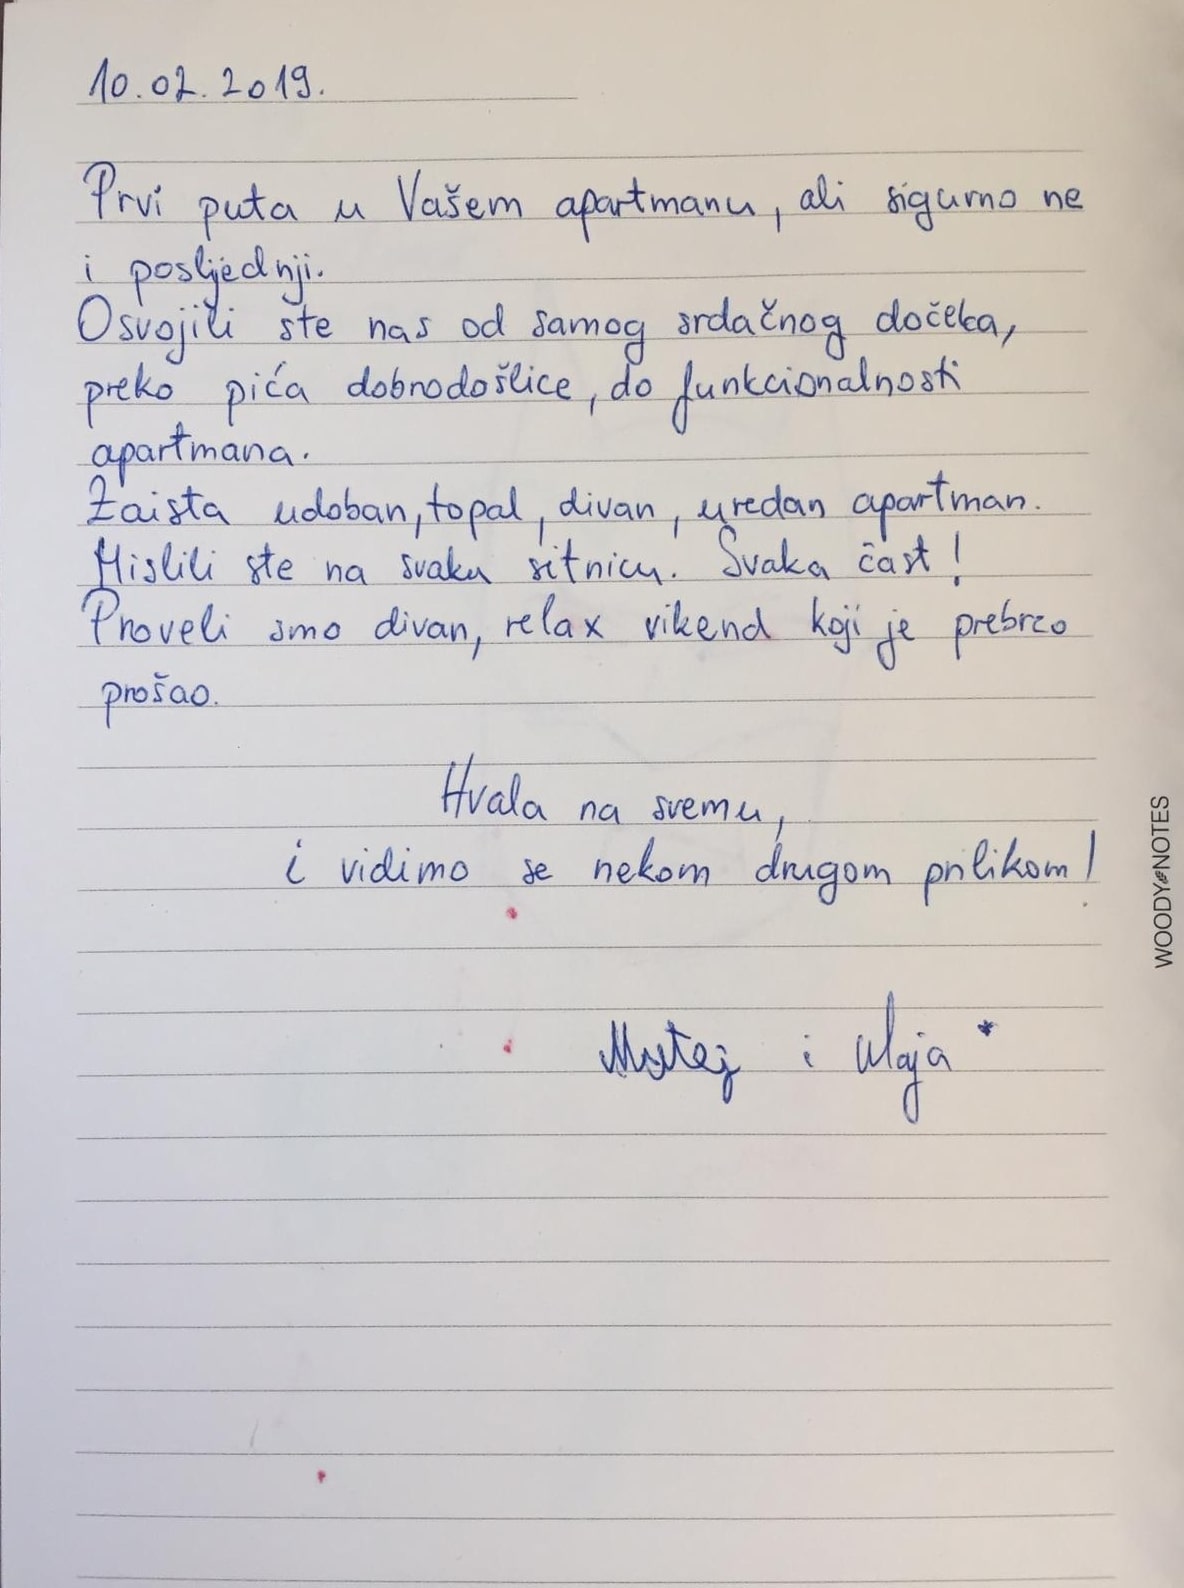 10.02.2019.
Prvi puta u Vašem apartmanu, ali sigurno ne
i posljednji.
Osvojili ste nas od samog srdačnog dočeka,
preko pića dobrodošlice, do funkcionalnosti
apartmana.
Zaista udoban, topal, divan, uredan apartman.
Mislili ste na svaku sitnicu. Svaka čast!
Proveli smo divan, relax vikend koji je prebrzo
prošao.
Hvala na svemu,
i vidimo se nekom drugom prilikom!
Matej i Maja *
WOODY NOTES